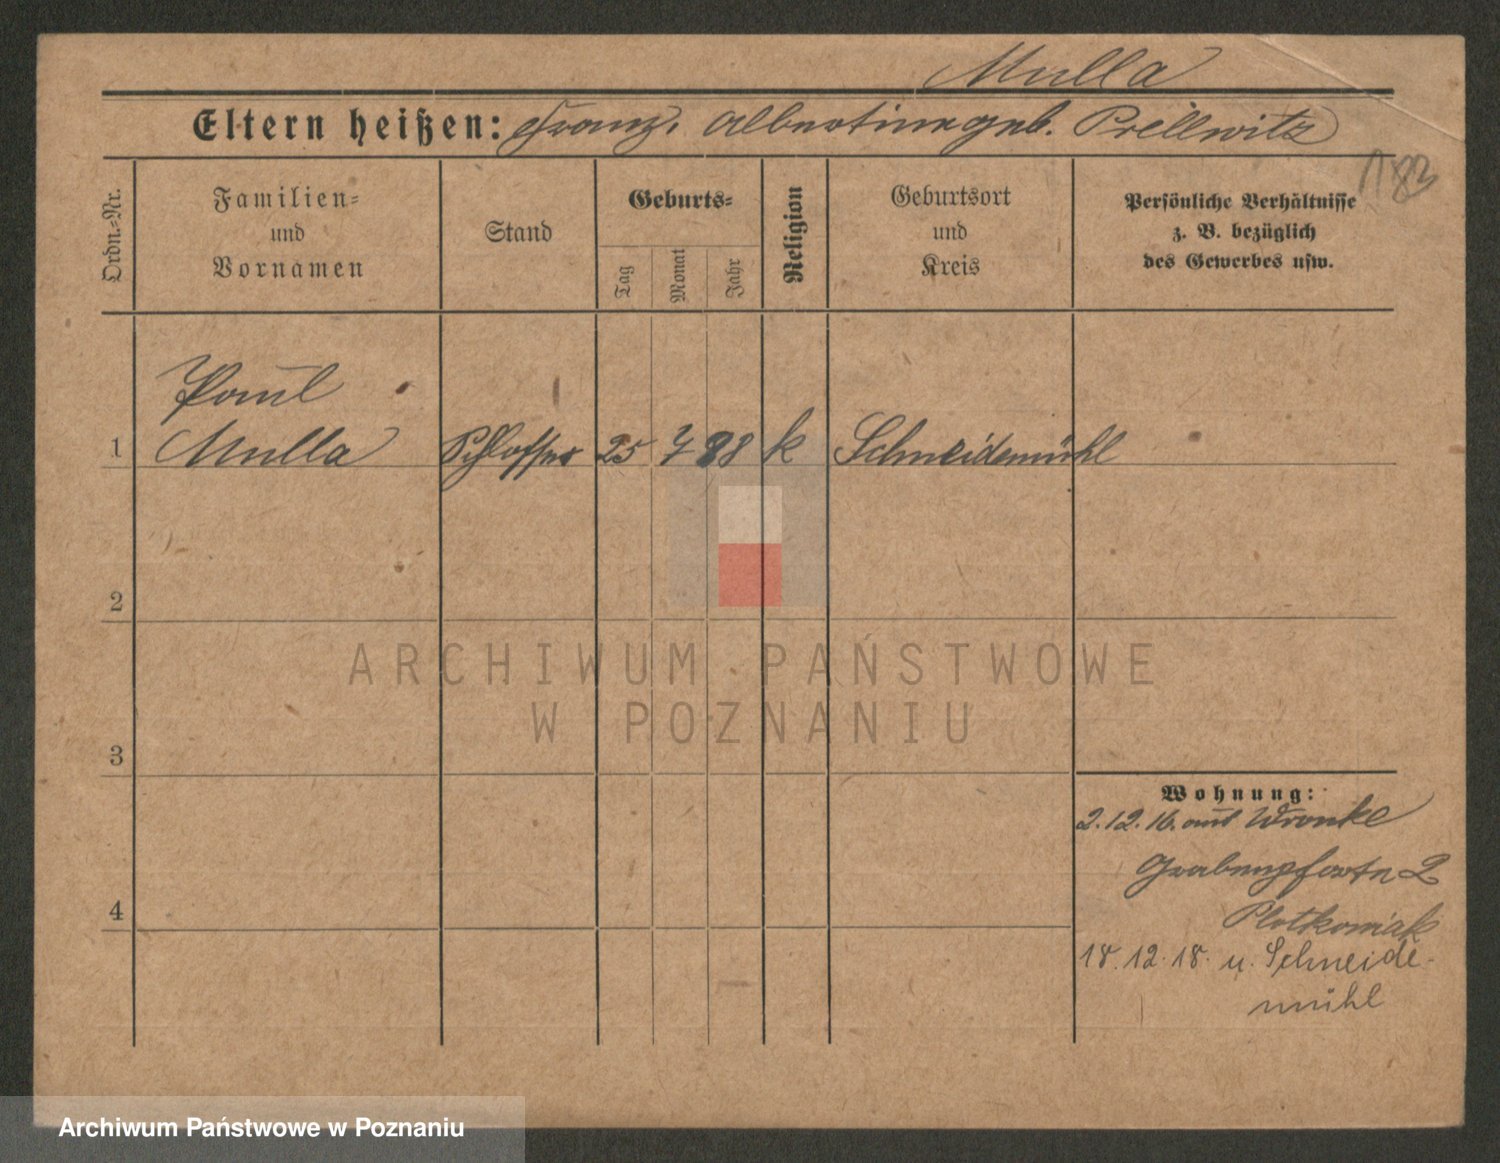 Mulla
Eltern heißen: Franz, Albertine geb. Prellwitz
183
Ordn.-Nr.
Familien-
und
Vornamen
Stand
Geburts-
Tag
Monat
Jahr
Religion
Geburtsort
und
Kreis
Persönliche Verhältnisse
z. B. bezüglich
des Gewerbes usw.
Paul
1 Mulla Schlosser 25 7 88 k Schneidemühl
2
ARCHIWUM PAŃSTWOWE
W POZNANIU
3
Wohnung:
2.12.16. aus Wronke
Grabenpforte 2
Plotkowiak
4
18.12.18. n. Schneide-
mühl
Archiwum Państwowe w Poznaniu